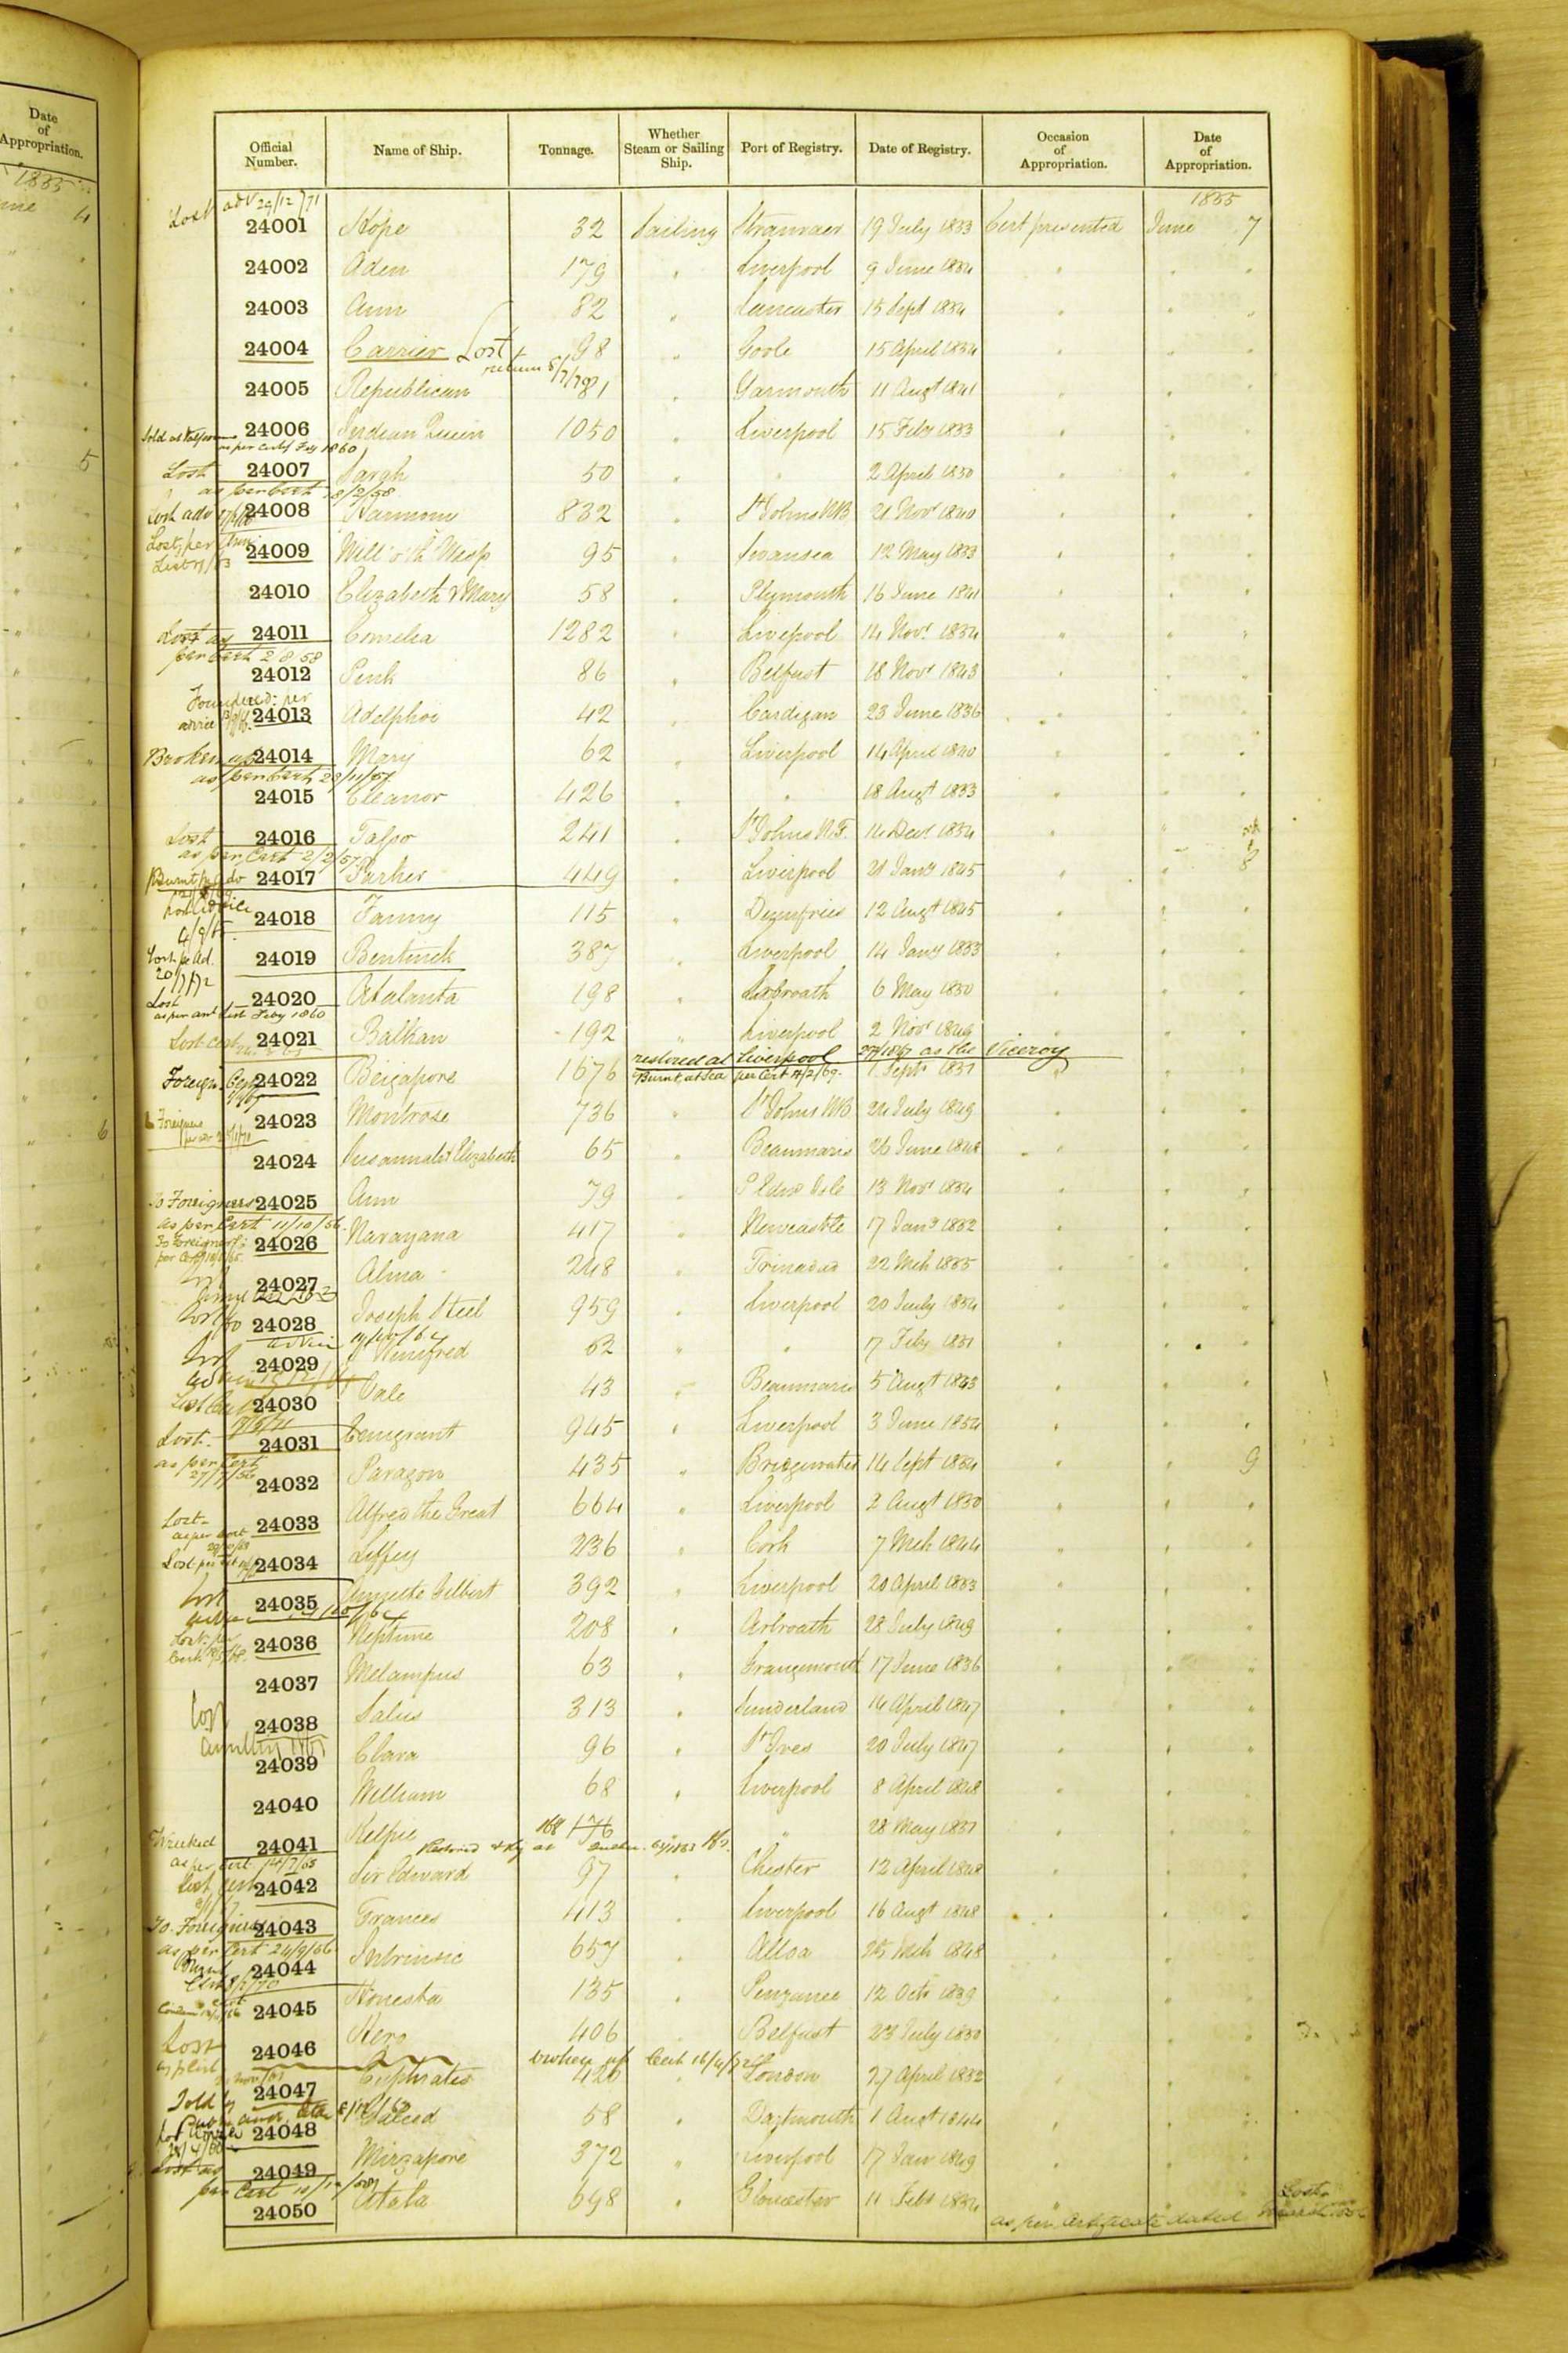 Date
of
Appropriation.
1855
4
5
6
Official Number. Name of Ship. Tonnage. Whether Steam or Sailing Ship. Port of Registry. Date of Registry. Occasion of Appropriation. Date of Appropriation.
1855
Lost adv 29/12/71
24001 Hope 32 Sailing Stranraer 19 July 1853 Cert presented June 7
24002 Aden 179 " Liverpool 9 June 1854 " " "
24003 Ann 82 " Lancaster 15 Sept 1854 " " "
24004 Carrier Lost 98 " Goole 15 April 1854 " " "
return 5/7/79
24005 Republican 81 " Yarmouth 11 Augt 1841 " " "
24006 Indian Queen 1050 " Liverpool 15 Feby 1853 " " "
as per Cert Feby 1860
Lost 24007 Sarah 50 " " 2 April 1850 " " "
as per Cert 8/2/58
Lost adv 24008 Harmony 832 " St Johns NB 21 Novr 1840 " " "
Lost per
24009 Will o th Wisp 95 " Swansea 12 May 1853 " " "
24010 Elizabeth & Mary 58 " Plymouth 16 June 1841 " " "
Lost as 24011 Cornelia 1282 " Liverpool 14 Novr 1854 " " "
per Cert 2/8/58
24012 Penk 86 " Belfast 18 Novr 1843 " " "
Foundered: per
advice 24013 Adelphoi 42 " Cardigan 23 June 1836 " " "
Broken up 24014 Mary 62 " Liverpool 14 April 1840 " " "
as per Cert 28/11/57
24015 Eleanor 426 " " 18 Augt 1853 " " "
Lost 24016 Talpo 241 " St Johns N.F. 14 Decr 1854 " " "
as per Cert 2/2/57
Burnt 24017 Parker 449 " Liverpool 21 Jany 1845 " " 8
24018 Fanny 115 " Dumfries 12 Augt 1845 " " "
Lost pr Ad. 24019 Bentinck 387 " Liverpool 14 Jany 1853 " " "
20/7/72
Lost 24020 Atalanta 198 " Arbroath 6 May 1850 " " "
Feby 1860
Lost 24021 Balkan 192 " Liverpool 2 Novr 1849 " " "
restored at Liverpool as the Viceroy
Foreign 24022 Beizapore 1676 Burnt at Sea per Cert 1 Septr 1851 " " "
Foreigners 24023 Montrose 736 " St Johns NB 24 July 1849 " " "
24024 Susannah & Elizabeth 65 " Beaumaris 26 June 1848 " " "
To Foreigners 24025 Ann 79 " P Edwd Isle 13 Novr 1854 " " "
as per Cert 11/10/56
To Foreigners 24026 Narayana 417 " Newcastle 17 Jany 1852 " " "
24027 Alma 248 " Trinadad 22 Mch 1855 " " "
24028 Joseph Steel 959 " Liverpool 20 July 1854 " " "
24029 St Winifred 62 " " 17 Feby 1851 " " "
24030 Vale 43 " Beaumaris 5 Augt 1843 " " "
Lost 24031 Emigrant 945 " Liverpool 3 June 1854 " " "
as per Cert
27/7/56
24032 Paragon 435 " Bridgwater 14 Sept 1854 " " 9
Lost 24033 Alfred the Great 664 " Liverpool 2 Augt 1850 " " "
as per Cert
Lost per 24034 Liffey 236 " Cork 7 Mch 1844 " " "
Lost 24035 Annette Gilbert 392 " Liverpool 20 April 1853 " " "
Lost per 24036 Neptune 208 " Arbroath 28 July 1849 " " "
Cert
24037 Melampus 63 " Grangemouth 17 June 1836 " " "
Lost 24038 Salus 313 " Sunderland 14 April 1847 " " "
24039 Clara 96 " St Ives 20 July 1847 " " "
24040 William 68 " Liverpool 8 April 1848 " " "
Wrecked 24041 Kelpie 168 176 " " 28 May 1851 " " "
as per Cert 14/7/65
Lost Cert 24042 Sir Edward 97 " Chester 12 April 1848 " " "
To Foreigners 24043 Frances 413 " Liverpool 16 Augt 1848 " " "
as per Cert 24/9/66
24044 Intrinsic 657 " Alloa 25 Mch 1848 " " "
24045 Honesta 135 " Penzance 12 Octr 1839 " " "
Lost 24046 Hero 406 " Belfast 23 July 1850 " " "
broken up Cert 16/4/72
24047 Euphrates 426 " London 27 April 1852 " " "
Sold
24048 Galeed 58 " Dartmouth 1 Augt 1844 " " "
Lost as 24049 Mirzapore 372 " Liverpool 17 Jan 1849 " " "
per Cert
24050 Atala 698 " Gloucester 11 Feby 1854 " " "
as per Certificate dated
Lost